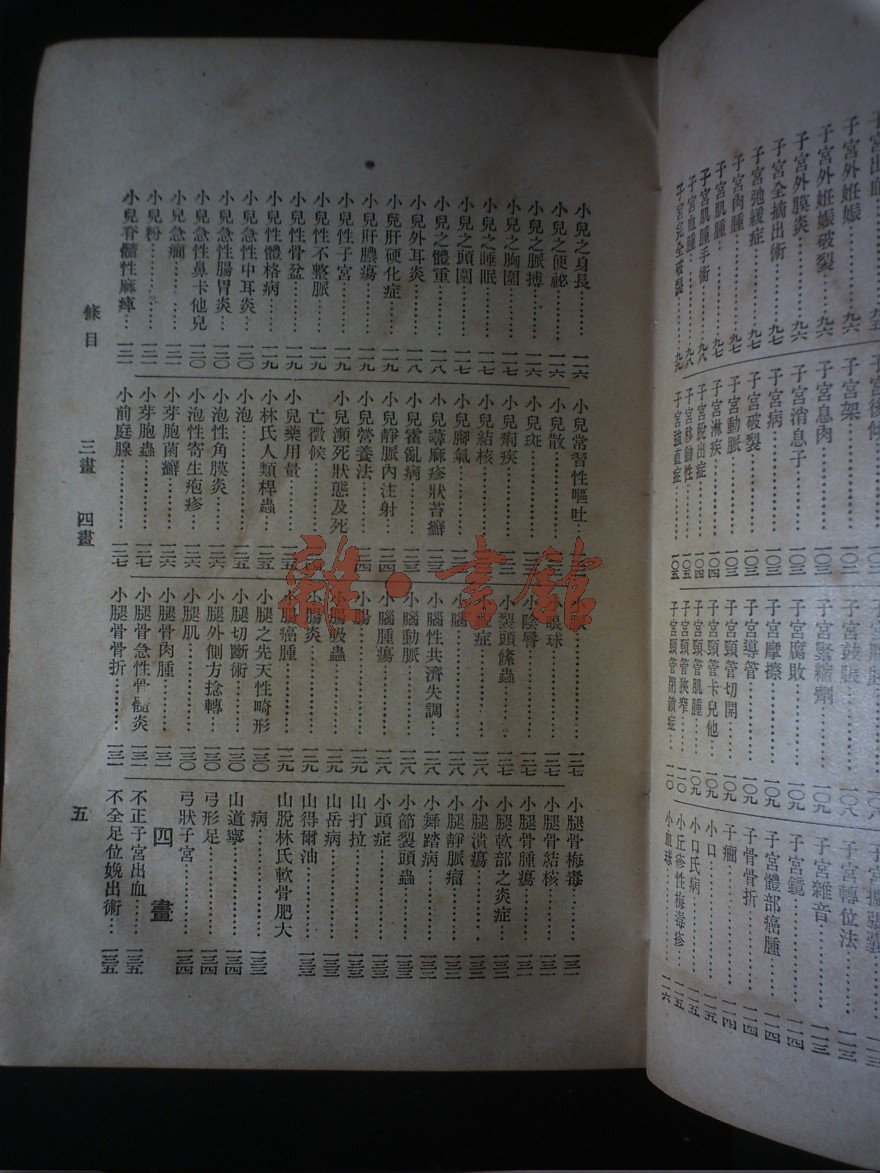 子宮外妊娠⋯⋯九六
子宮外妊娠破裂⋯⋯九六
子宮外膜炎⋯⋯九六
子宮全摘出術⋯⋯九七
子宮弛緩症⋯⋯九七
子宮肉腫⋯⋯九七
子宮肌腫⋯⋯九七
子宮肌腫手術⋯⋯九八
子宮血腫⋯⋯九八
子宮完全破裂⋯⋯九
子宮後傾
子宮架⋯⋯一〇二
子宮息肉⋯⋯一〇三
子宮消息子⋯⋯一〇三
子宮病⋯⋯一〇三
子宮破裂⋯⋯一〇三
子宮動脈⋯⋯一〇三
子宮淋疾⋯⋯一〇四
子宮脫出症⋯⋯一〇四
子宮移動性⋯⋯一〇五
子宮強直症⋯⋯一〇五
子宮緊縮劑⋯⋯一〇九
子宮腐敗⋯⋯一〇九
子宮摩擦⋯⋯一〇九
子宮導管⋯⋯一〇九
子宮頸管切開⋯⋯一〇九
子宮頸管卡兒他⋯⋯一〇九
子宮頸管肌腫⋯⋯一〇九
子宮頸管狹窄⋯⋯一一〇
子宮頸管閉鎖症⋯⋯一一〇
子宮轉位法⋯⋯一一三
子宮雜音⋯⋯一一三
子宮鏡⋯⋯一一四
子宮體部癌腫⋯⋯一一四
子骨骨折⋯⋯一一四
子癇⋯⋯一一四
小口⋯⋯一一五
小口氏病⋯⋯一一五
小丘疹性梅毒疹⋯⋯一一五
小血球⋯⋯一一六
小兒之身長⋯⋯一一六
小兒之便祕⋯⋯一一六
小兒之脈搏⋯⋯一一六
小兒之胸圍⋯⋯一一七
小兒之睡眠⋯⋯一一七
小兒之頭圍⋯⋯一一七
小兒之體重⋯⋯一一八
小兒外耳炎⋯⋯一一八
小兒肝硬化症⋯⋯一一九
小兒肝膿瘍⋯⋯一一九
小兒性子宮⋯⋯一一九
小兒性不整脈⋯⋯一一九
小兒性骨盆⋯⋯一一九
小兒性體格病⋯⋯一一九
小兒急性中耳炎⋯⋯一二〇
小兒急性腸胃炎⋯⋯一二〇
小兒急性鼻卡他兒⋯⋯一二〇
小兒急癇⋯⋯一二一
小兒粉⋯⋯一二一
小兒脊髓性麻痺⋯⋯一二一
小兒常習性嘔吐⋯⋯
小兒散⋯⋯
小兒斑⋯⋯一二三
小兒痢疾⋯⋯一二三
小兒結核⋯⋯一二三
小兒腳氣⋯⋯一二三
小兒蕁麻疹狀苔癬⋯⋯一二三
小兒霍亂病⋯⋯一二三
小兒靜脈內注射⋯⋯一二四
小兒營養法⋯⋯一二四
小兒瀕死狀態及死
亡徵候⋯⋯
小兒藥用量⋯⋯一二五
小林氏人類桿蟲⋯⋯一二五
小泡⋯⋯一二五
小泡性角膜炎⋯⋯一二六
小泡性寄生疱疹⋯⋯一二六
小芽胞菌癬⋯⋯一二六
小芽胞蟲⋯⋯一二七
小前庭腺⋯⋯一二七
眼球⋯⋯一二七
小陰脣⋯⋯一二七
小裂頭絛蟲⋯⋯一二七
症⋯⋯一二八
小腦⋯⋯一二八
小腦性共濟失調⋯⋯一二八
小腦動脈⋯⋯一二八
小腦腫瘍⋯⋯一二八
小腸⋯⋯一二九
小腸吸蟲⋯⋯一二九
小腸炎⋯⋯一二九
小腿癌腫⋯⋯一二九
小腿之先天性畸形⋯⋯一三〇
小腿切斷術⋯⋯一三〇
小腿外側方捻轉⋯⋯一三〇
小腿肌⋯⋯一三〇
小腿骨肉腫⋯⋯一三一
小腿骨急性骨髓炎⋯⋯一三一
小腿骨骨折⋯⋯一三一
小腿骨梅毒⋯⋯一三一
小腿骨結核⋯⋯一三一
小腿骨腫瘍⋯⋯一三一
小腿軟部之炎症⋯⋯一三二
小腿潰瘍⋯⋯一三二
小腿靜脈瘤⋯⋯一三二
小舞踏病⋯⋯一三二
小節裂頭蟲⋯⋯一三三
小頭症⋯⋯一三三
山打拉⋯⋯一三三
山岳病⋯⋯一三三
山得爾油⋯⋯一三三
山脫林氏軟骨肥大
病⋯⋯一三三
山道寧⋯⋯一三四
弓形足⋯⋯一三四
弓狀子宮⋯⋯一三四
四畫
不正子宮出血⋯⋯一三五
不全足位娩出術⋯⋯一三五
條目 三畫 四畫 五
雜·書館